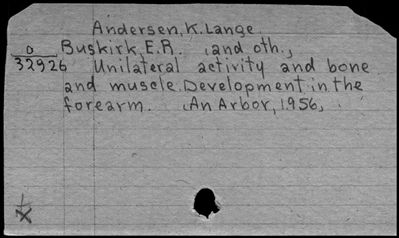 Andersen, K. Lange
Buskirk, E.R. (and oth.,
0
32926
Unilateral activity and bone
and muscle. Development in the
forearm. (An Arbor, 1956,